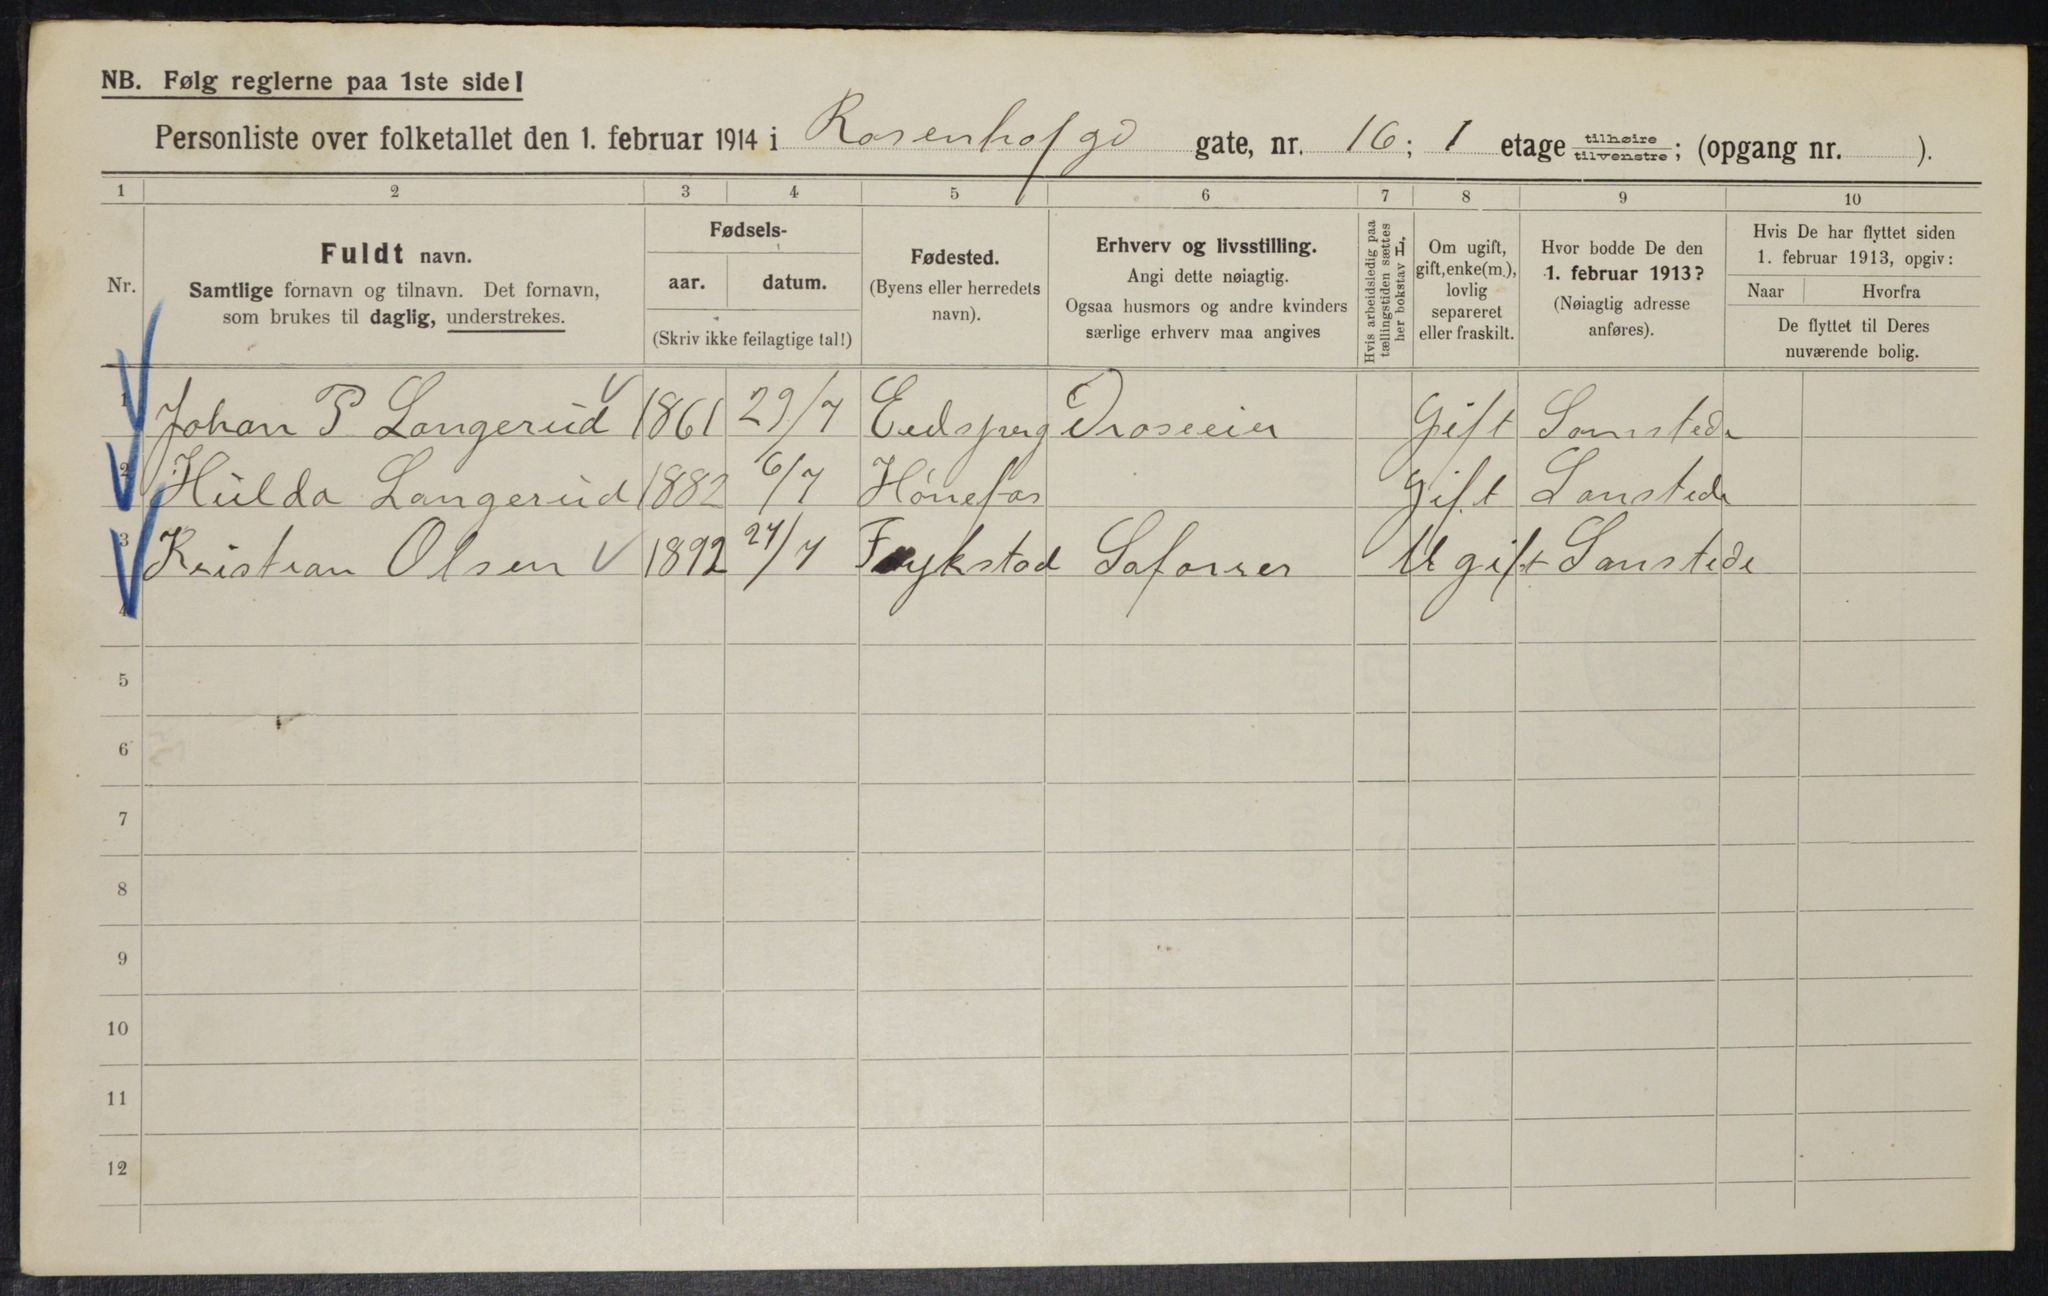 NB. Følg reglerne paa 1ste side!
Personliste over folketallet den 1. februar 1914 i Rosenhofgd gate, nr. 16; 1 etage tilhøire/tilvenstre; (opgang nr. ).
1 2 3 4 5 6 7 8 9 10
Nr.
Fuldt navn.
Samtlige fornavn og tilnavn. Det fornavn,
som brukes til daglig, understrekes.
Fødsels-
aar. datum.
(Skriv ikke feilagtige tal!)
Fødested.
(Byens eller herredets
navn).
Erhverv og livsstilling.
Angi dette nøiagtig.
Ogsaa husmors og andre kvinders
særlige erhverv maa angives
Hvis arbeidsledig paa
tællingstiden sættes
her bokstav H.
Om ugift,
gift, enke(m.),
lovlig
separeret
eller fraskilt.
Hvor bodde De den
1. februar 1913?
(Nøiagtig adresse
anføres).
Hvis De har flyttet siden
1. februar 1913, opgiv:
Naar Hvorfra
De flyttet til Deres
nuværende bolig.
1 Johan P Langerud 1861 29/7 Eedsperg Droseeier Gift Samstede
2 Hulda Langerud 1882 6/7 Hónefos Gift Samstede
3 Kristian Olsen 1892 27/7 Fykstad Saforrer Ugift Samstede
4
5
6
7
8
9
10
11
12